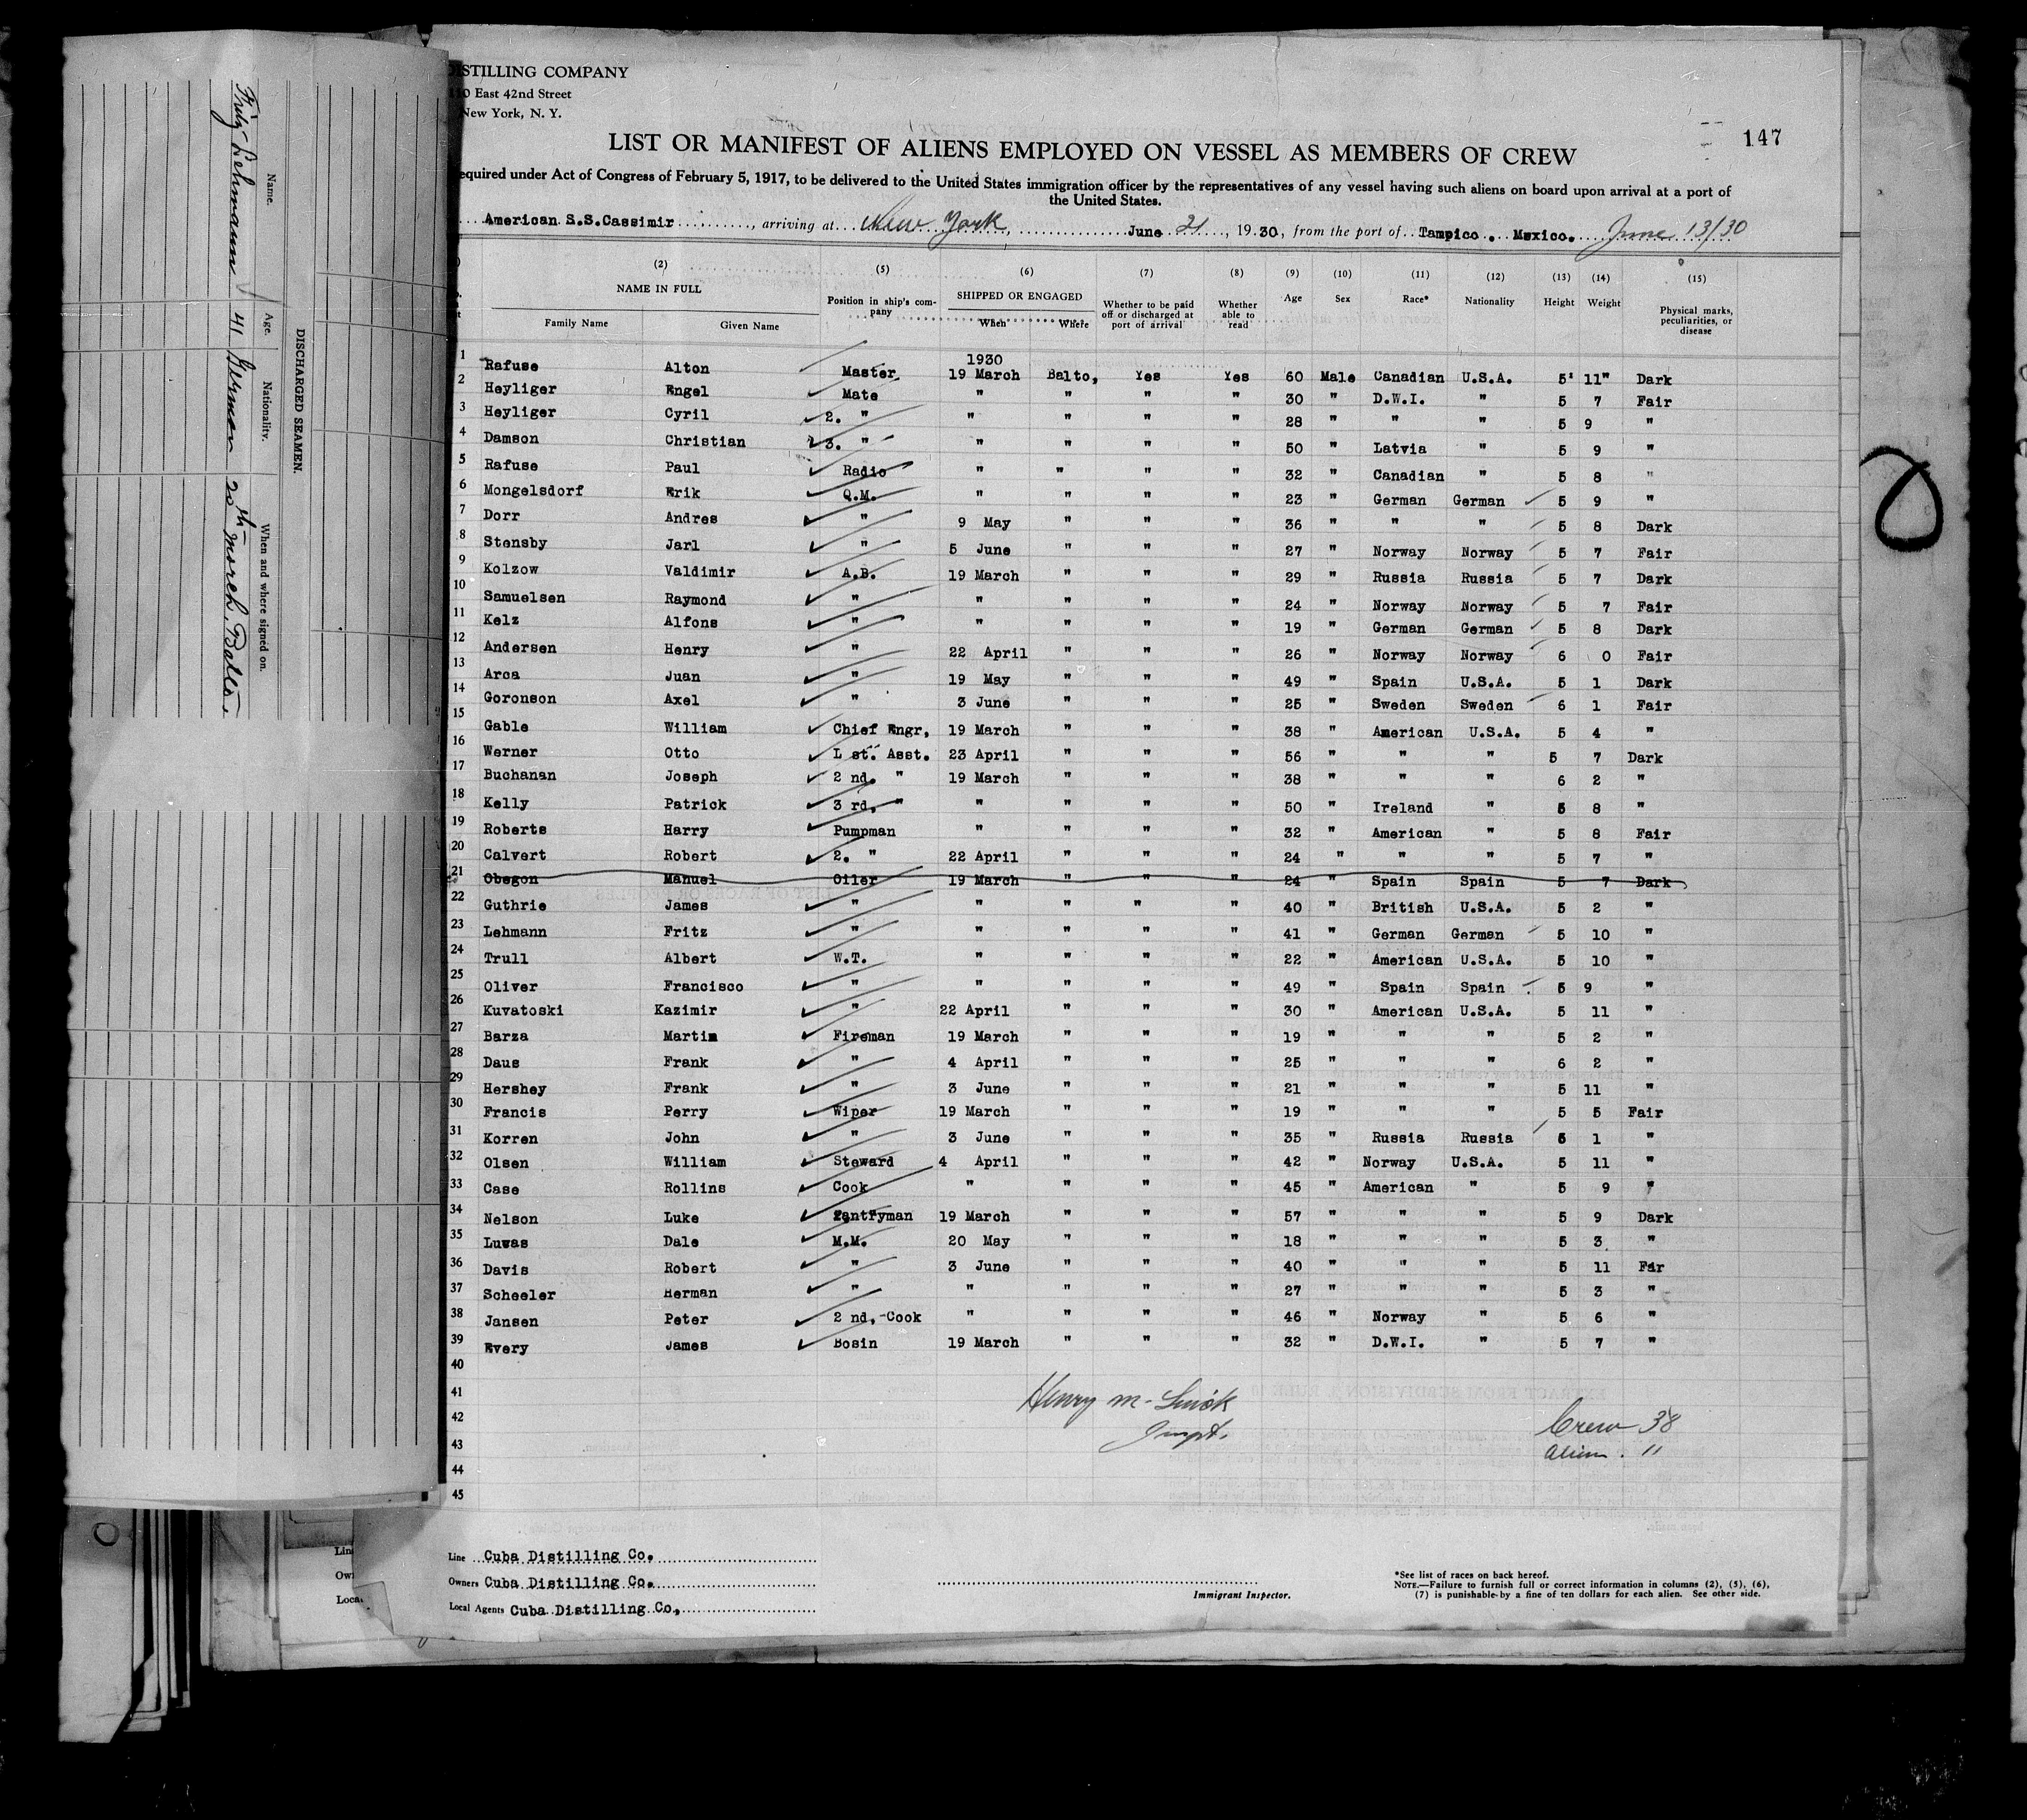 DISTILLING COMPANY
East 42nd Street
New York, N. Y.
147
LIST OR MANIFEST OF ALIENS EMPLOYED ON VESSEL AS MEMBERS OF CREW
equired under Act of Congress of February 5, 1917, to be delivered to the United States immigration officer by the representatives of any vessel having such aliens on board upon arrival at a port of
the United States.
American S.S.Cassimir, arriving at New York, June 21, 1930, from the port of Tampico. Mexico. June 13/30
(2) (5) (6) (7) (8) (9) (10) (11) (12) (13) (14) (15)
NAME IN FULL Position in ship's company SHIPPED OR ENGAGED Whether to be paid off or discharged at port of arrival Whether able to read Age Sex Race* Nationality Height Weight Physical marks, peculiarities, or disease
Family Name Given Name When Where
1930
1 Rafuse Alton Master 19 March Balto, Yes Yes 60 Male Canadian U.S.A. 5' 11" Dark
2 Heyliger Engel Mate " " " " 30 " D.W.I. " 5 7 Fair
3 Heyliger Cyril 2. " " " " " 28 " " " 5 9 "
4 Damson Christian 3. " " " " " 50 " Latvia " 5 9 "
5 Rafuse Paul Radio " " " " 32 " Canadian " 5 8 "
6 Mongelsdorf Erik Q.M. " " " " 23 " German German 5 9 "
7 Dorr Andres " 9 May " " " 36 " " " 5 8 Dark
8 Stensby Jarl " 5 June " " " 27 " Norway Norway 5 7 Fair
9 Kolzow Valdimir A.B. 19 March " " " 29 " Russia Russia 5 7 Dark
10 Samuelsen Raymond " " " " " 24 " Norway Norway 5 7 Fair
11 Kelz Alfons " " " " " 19 " German German 5 8 Dark
12 Andersen Henry " 22 April " " " 26 " Norway Norway 6 0 Fair
13 Arca Juan " 19 May " " " 49 " Spain U.S.A. 5 1 Dark
14 Goronson Axel " 3 June " " " 25 " Sweden Sweden 6 1 Fair
15 Gable William Chief Engr, 19 March " " " 38 " American U.S.A. 5 4 "
16 Werner Otto L st. Asst. 23 April " " " 56 " " " 5 7 Dark
17 Buchanan Joseph 2 nd. " 19 March " " " 38 " " " 6 2 "
18 Kelly Patrick 3 rd. " " " " " 50 " Ireland " 5 8 "
19 Roberts Harry Pumpman " " " " 32 " American " 5 8 Fair
20 Calvert Robert 2. " 22 April " " " 24 " " " 5 7 "
21 Obegon Manuel Oiler 19 March " " " 24 " Spain Spain 5 7 Dark
22 Guthrie James " " " " " 40 " British U.S.A. 5 2 "
23 Lehmann Fritz " " " " " 41 " German German 5 10 "
24 Trull Albert W.T. " " " " 22 " American U.S.A. 5 10 "
25 Oliver Francisco " " " " " 49 " Spain Spain 5 9 "
26 Kuvatoski Kazimir " 22 April " " " 30 " American U.S.A. 5 11 "
27 Barza Martim Fireman 19 March " " " 19 " " " 5 2 "
28 Daus Frank " 4 April " " " 25 " " " 6 2 "
29 Hershey Frank " 3 June " " " 21 " " " 5 11 "
30 Francis Perry Wiper 19 March " " " 19 " " " 5 5 Fair
31 Korren John " 3 June " " " 35 " Russia Russia 6 1 "
32 Olsen William Steward 4 April " " " 42 " Norway U.S.A. 5 11 "
33 Case Rollins Cook " " " " 45 " American " 5 9 "
34 Nelson Luke Pantryman 19 March " " " 57 " " " 5 9 Dark
35 Luwas Dale M.M. 20 May " " " 18 " " " 5 3 "
36 Davis Robert " 3 June " " " 40 " " " 5 11 Fair
37 Scheeler Herman " " " " " 27 " " " 5 3 "
38 Jansen Peter 2 nd, Cook " " " " 46 " Norway " 5 6 "
39 Every James Bosin 19 March " " " 32 " D.W.I. " 5 7 "
40
41
42
43
44
45
Henry M.
Inspt.
Crew 38
Alien. 11
Line Cuba Distilling Co.
Owners Cuba Distilling Co.
Local Agents Cuba Distilling Co,
Immigrant Inspector.
*See list of races on back hereof.
NOTE.—Failure to furnish full or correct information in columns (2), (5), (6),
(7) is punishable by a fine of ten dollars for each alien. See other side.
DISCHARGED SEAMEN.
Name. Age. Nationality. When and where signed on.
Fritz Lehmann 41 German 20th March, Balto.
Lin
Ow
Loca